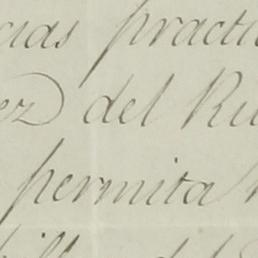 cias practi
ez del Ru
permita